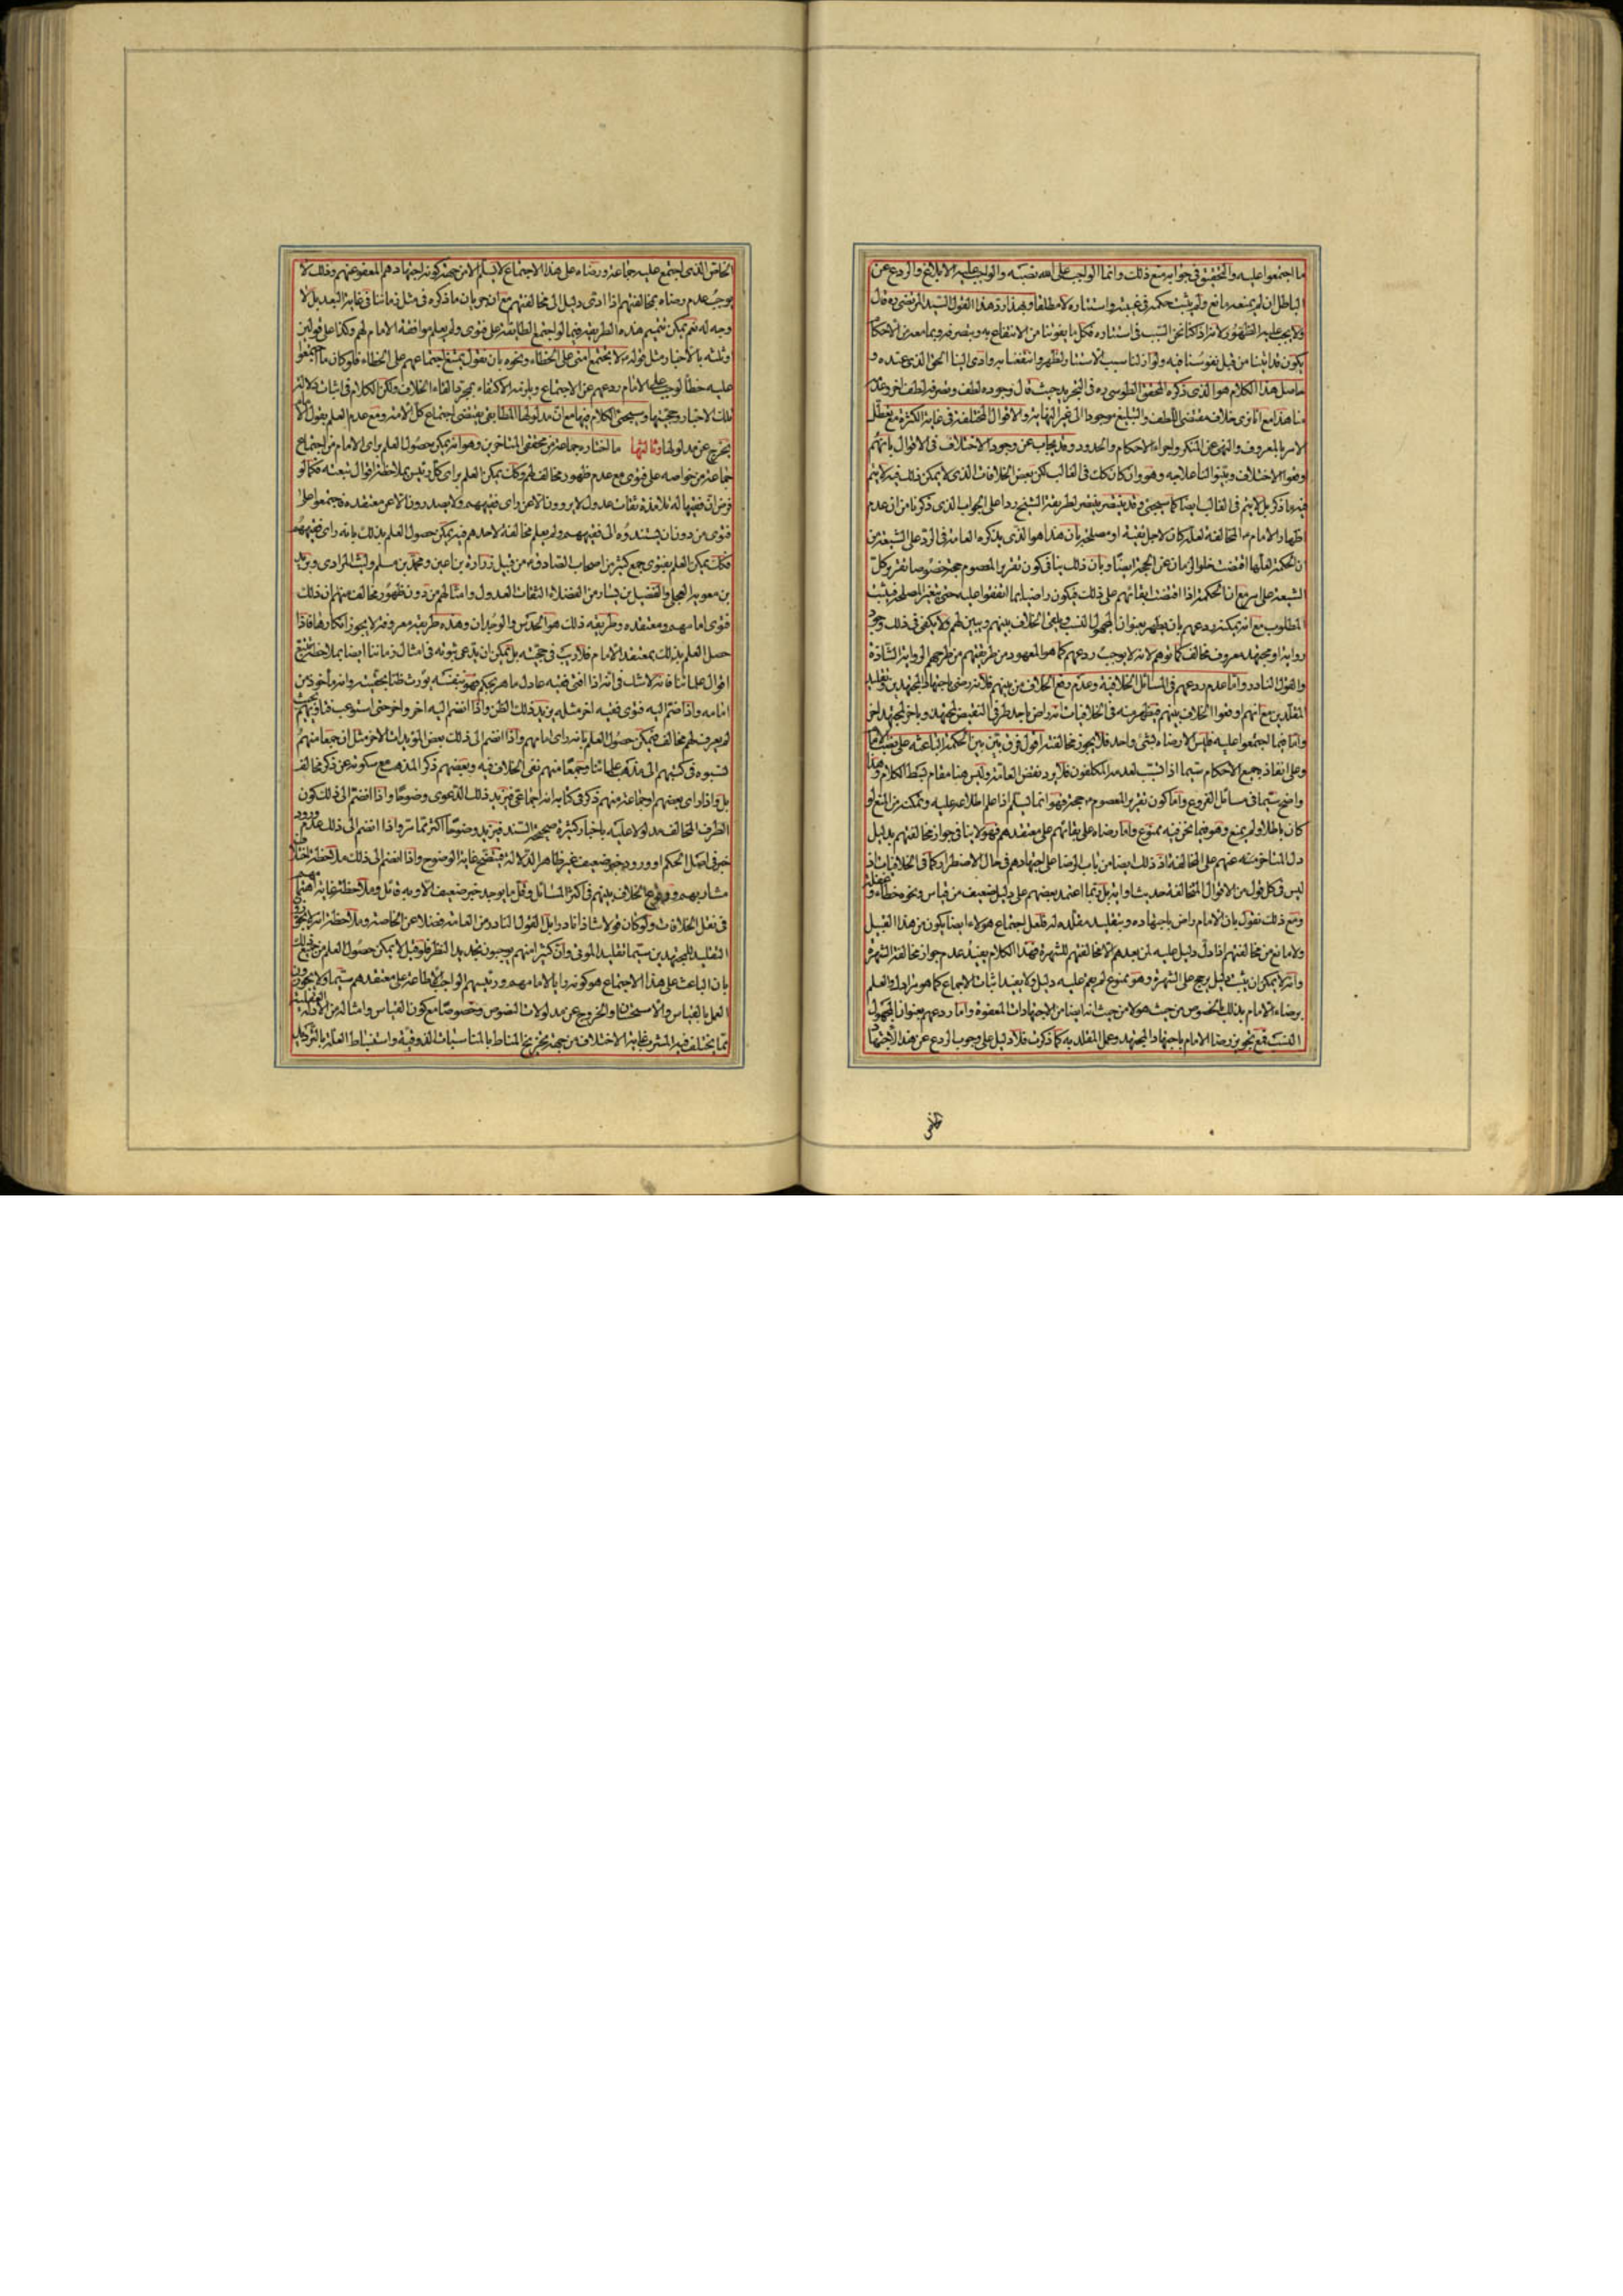 ما اجتمعوا عليه والتحقيق في جوابه منع ذلك وانما الواجب على الله نصبه والواجب عليه الابلاغ والردع عن
الباطل ان لم يمنعه مانع ولم يثبت حكمة في غيبته واستتاره لا مطلقا وبهذا رد هذا القول السيد المرتضى ره قال
ولا يجب عليه الظهور لانه اذا كنا نحن السبب في استتاره فكل ما يفوتنا من الانتفاع به وبتصرفه وبما معه من الاحكام
يكون قد اتينا من قبل نفوسنا فيه ولو ازلنا سبب الاستتار لظهر وانتفعنا به وادى الينا الحق الذي عنده و
حاصل هذا الكلام هو الذي ذكره المحقق الطوسي ره في التجريد حيث قال وجوده لطف وتصرفه لطف اخر وعدمه
منا هذا مع انا نرى خلاف مقتضى اللطف والتبليغ موجودا الى غير النهاية والاقوال المختلفة في غاية الكثرة مع تعطل
الامر بالمعروف والنهي عن المنكر واجراء الاحكام والحدود وقد يجاب عن وجود الاختلاف في الاقوال بانهم
اوقعوا الاختلاف وبينوا لنا علاجه وهو وان كان كذلك في الغالب لكن بعض الخلافات الذي لا يمكن ذلك فيه لا يتم
فيه ما ذكر بل لا يتم في الغالب ايضا كما سيجيء وقد ينتصر لطريقة الشيخ ردا على الجواب الذي ذكرنا من ان عدم
اظهار الامام ع المخالفة لعله كان لاجل تقية او مصلحة بان هذا هو الذي يذكره العامة في الرد على الشيعة من
ان الحكمة لعلها اقتضت خلو الزمان عن الحجة ايضا وبان ذلك ينافي كون تقرير المعصوم حجة خصوصا تقرير كل
الشيعة على امر مع ان الحكمة اذا اقتضت ابقائهم على ذلك فيكون راضيا بما اتفقوا عليه حتى يتغير المصلحة فيثبت
المطلوب مع انه يمكنه ردعهم بان يظهر بعنوان المجهول النسب ويلقى الخلاف بينهم ويبين لهم ولا يكفي في ذلك وجود
رواية او مجتهد معروف مخالف كما توهم لانه لا يوجب ردعهم كما هو المعهود من طريقتهم من طرحهم الرواية الشاذة
والقول النادر واما عدم ردعهم في المسائل الخلافية وعدم رفع الخلاف من بينهم فلانه رضي باجتهاد المجتهدين وتقليد
المقلدين مع انهم اوقعوا الخلاف بينهم فيظهر منه في الخلافيات انه راض باحد طرفي النقيض لمجتهد وباخر لمجتهد اخر
واما فيما اجتمعوا عليه فليس الا رضاه بشيء واحد فلا يجوز مخالفته اقول فرق بين بين الحكمة الباعثة على نصب الامام
وعلى انفاذ جميع الاحكام سيما اذا تسبب لعدمه المكلفون فلا يرد نقض العامة وليس هنا مقام بسط الكلام وهذا
واضح سيما في مسائل الفروع واما كون تقرير المعصوم ع حجة فهو انما يسلم اذا علم اطلاعه عليه وتمكنه من المنع لو
كان باطلا ولم يمنع وهو فيما نحن فيه ممنوع واما رضاه على بقائهم على معتقدهم فهو لا ينافي جواز مخالفتهم بدليل
دل المتاخر منه عنهم على المخالفة اذ ذلك ايضا من باب الرضا على اجتهادهم في حال الاضطرار كما في الخلافيات اذ
ليس في كل قول من الاقوال المتخالفة حديث او اية بل ربما اعتمد بعضهم على دليل ضعيف من قياس ونحوه خطاء وغفلة
ومع ذلك نقول بان الامام راض باجتهاده وبتقليد مقلده له فلعل اجتماع هولاء ايضا يكون من هذا القبيل
ولا مانع من مخالفتهم اذا دل دليل عليه لمن بعدهم الا مخالفتهم للشهرة فهذا الكلام يفيد عدم جواز مخالفة الشهرة
وانه لا يمكن ان يثبت دليل يرجح على الشهرة وهو ممنوع لم يقم عليه دليل ولا يفيد اثبات الاجماع كما هو مرادك والعلم
برضاء الامام بذلك بالخصوص من حيث هو لا من حيث انه ايضا من الاجتهادات المعفوة واما ردعهم بعنوان المجهول
النسب فمع تجويز رضا الامام باجتهاد المجتهد وعمل المقلد به كما ذكرت فلا دليل على وجوب الردع عن هذا الاجتهاد
الخاص
الخاص الذي اجتمع عليه جماعة ورضاه على هذا الاجتماع لا يسلم الا من جهة كونه اجتهادهم المعفو عنهم وذلك لا
يوجب عدم رضاه بمخالفتهم اذا ادى دليل الى مخالفتهم مع ان جريان ما ذكره في مثل زماننا في غاية البعد بل لا
وجه له نعم يمكن تتميم هذه الطريقة فيما لو اجتمع الطائفة على فتوى ولم يعلم موافقة الامام لهم وكذا على قولين
وثلثة بالاخبار مثل قوله ع لا يجتمع امتي على الخطاء ونحوه بان نقول يمتنع اجتماعهم على الخطاء فلو كان ما اجتمعوا
عليه خطأ لوجب على الامام ردعهم عن الاجتماع ويلزمه الاكتفاء بمجرد القاء الخلاف ولكن الكلام في اثبات دلالة
تلك الاخبار وحجيتها وسيجيء الكلام فيها مع ان مدلولها المطابقي يقتضي اجتماع كل الامة ومع عدم العلم بقول الامام
يخرج عن مدلولها وثالثها ما اختاره جماعة من محققي المتاخرين وهو انه يمكن حصول العلم براي الامام من اجتماع
جماعة من خواصه على فتوى مع عدم ظهور مخالف لهم وكذلك يمكن العلم براي كل رئيس بملاحظة اقوال تبعته فكما لو
فرض ان فقيها له تلامذة ثقات عدول لا يروون الا عن راي فقيههم ولا يصدرون الا عن معتقده فاجتمعوا على
فتوى من دون ان يسندوه الى فقيههم ولم يعلم مخالفة لاحدهم فيه يمكن حصول العلم بذلك بانه راي فقيههم
فكذلك يمكن العلم بفتوى جمع كثير من اصحاب الصادق ع من قبيل زرارة بن اعين ومحمد بن مسلم وليث المرادي وبريد
بن معوية العجلي والفضيل بن يسار من الفضلاء الثقات العدول وامثالهم من دون ظهور مخالف منهم ان ذلك
فتوى امامهم ومعتقده وطريقه ذلك هو الحدس والوجدان وهذه طريقة معروفة لا يجوز انكارها فاذا
حصل العلم بذلك بمعتقد الامام فلا ريب في حجيته بل يمكن ان يدعى ثبوته في امثال زماننا ايضا بملاحظة تتبع
اقوال علمائنا فانه لا شك في انه اذا افتى فقيه عادل ماهر بحكم فهو بنفسه يورث ظنا بحقيته وانه مأخوذ من
امامه واذا ضم اليه فتوى فقيه اخر مثله يزيد ذلك الظن واذا انضم اليه اخر واخر حتى استوعب فتاويهم بحيث
لم يعرف لهم مخالف فيمكن حصول العلم بانه راي امامهم واذا انضم الى ذلك بعض المؤيدات الاخر مثل ان جمعا منهم
نسبوه في كتبهم الى مذهب علمائنا وجمعا منهم نفى الخلاف فيه وبعضهم ذكر المذهب مع سكوته عن ذكر مخالف
بل واذا راى بعضهم او جماعة منهم ذكر في كتابه انه اجماعي فيزيد ذلك الدعوى وضوحا واذا انضم الى ذلك كون
الطرف المخالف مدلولا عليه باخبار كثيرة صحيحة السند فيزيد وضوحا اكثر مما مر واذا انضم الى ذلك عدم ورود
خبر في اصل الحكم او ورود خبر ضعيف غير ظاهر الدلالة فيتضح غاية الوضوح واذا انضم الى ذلك ملاحظة اختلاف
مشاربهم ووقوع الخلاف بينهم في اكثر المسائل وقل ما يوجد خبر ضعيف الا وبه قائل وملاحظة غاية اهتمامهم
في نقل الخلافات ولو كان قولا شاذا نادرا بل القول النادر من العامة فضلا عن الخاصة وملاحظة انه لا يجوزون
التقليد للمجتهدين سيما تقليد الموتى وان كثيرا منهم يوجبون تجديد النظر فلو قيل لا يمكن حصول العلم من جميع ذلك
بان الباعث على هذا الاجتماع هو كونه رايا لامامهم ورئيسهم الواجب الاطاعة على معتقدهم سيما ولا يجوزون
العمل بالقياس والاستحسان والخروج عن مدلولات النصوص وخصوصا مع كون القياس وامثاله من الادلة العقلية
مما يختلف فيه المشرب غاية الاختلاف من جهة تخريج المناط بالمناسبات الذوقية واستنباط العلة بالترديد